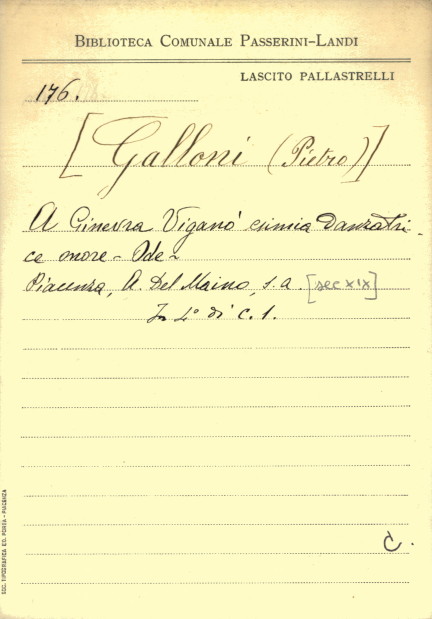 BIBLIOTECA COMUNALE PASSERINI-LANDI
LASCITO PALLASTRELLI
176.
[Galloni (Pietro)]
A Ginevra Viganò esimia Danzatri-
ce onore - Ode -
Piacenza, A. Del Maino, s.a. [sec XIX]
In 4° di c. 1.
C.
SOC. TIPOGRAFICA ED. PORTA - PIACENZA